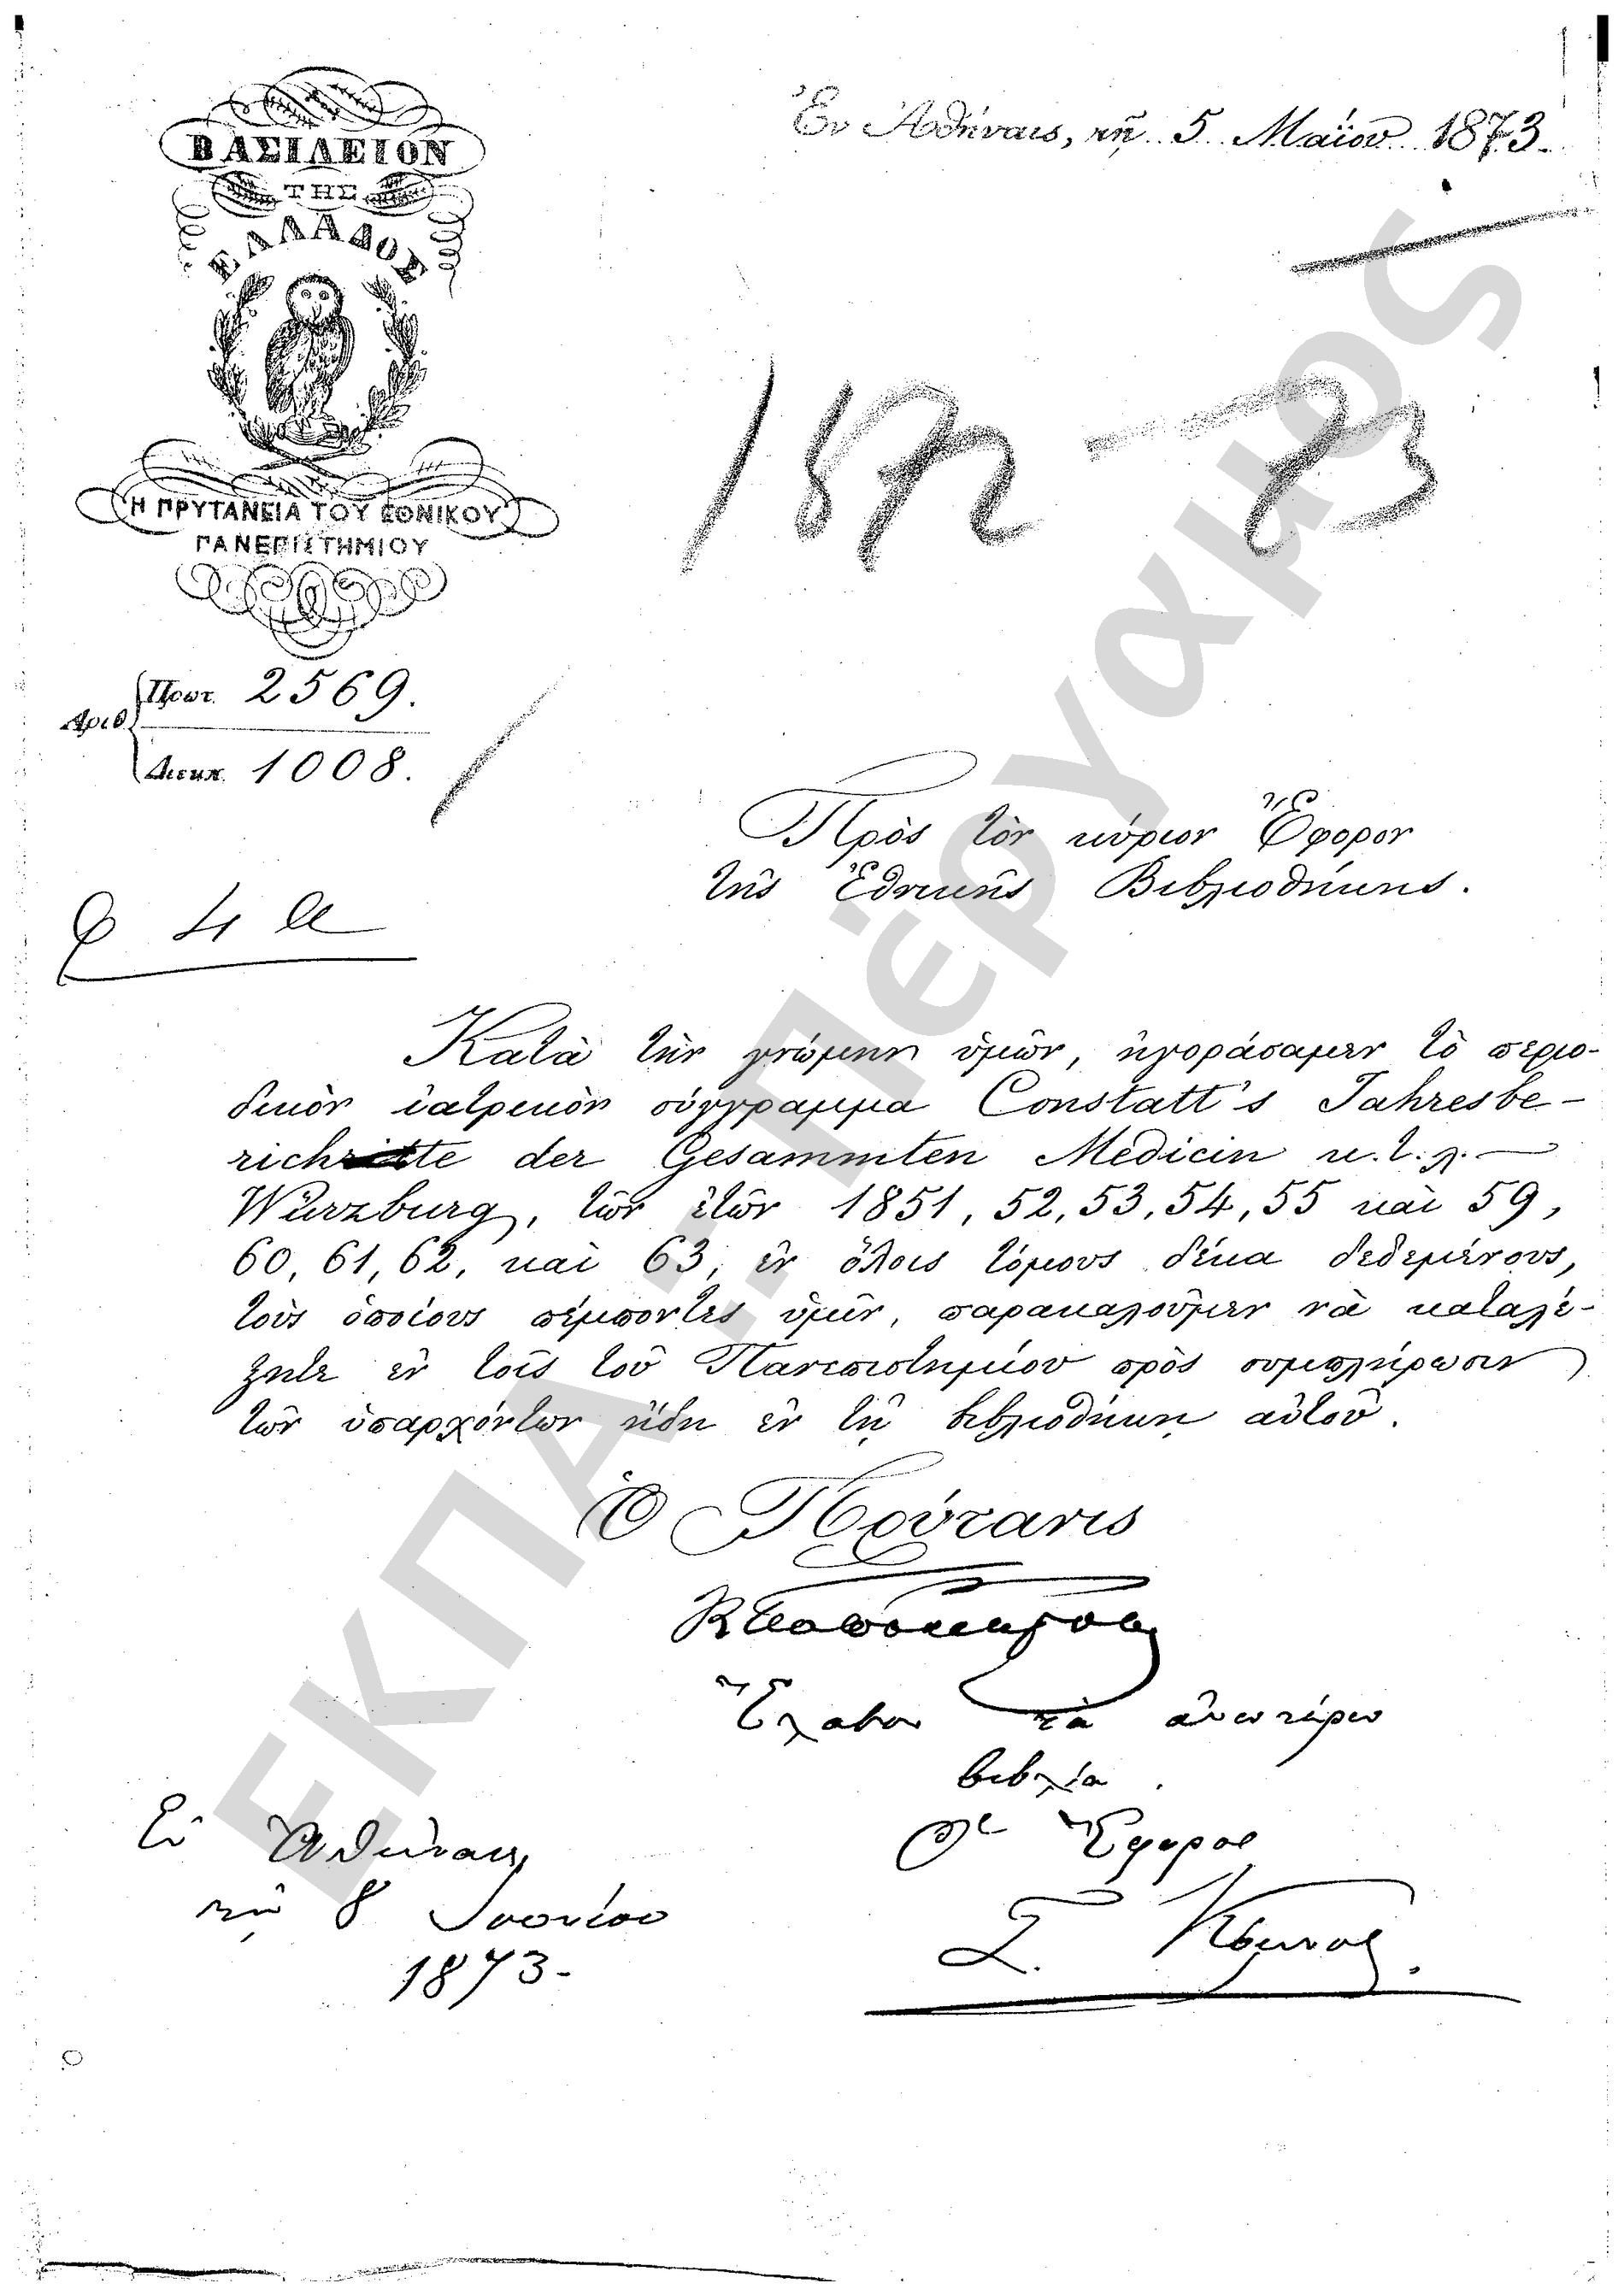 Ἐν Ἀθήναις, τῇ 5 Μαΐου 1873.
ΒΑΣΙΛΕΙΟΝ
ΤΗΣ
ΕΛΛΑΔΟΣ
Η ΠΡΥΤΑΝΕΙΑ ΤΟΥ ΕΘΝΙΚΟΥ
ΠΑΝΕΠΙΣΤΗΜΙΟΥ
1872-73
Ἀριθ. Πρωτ. 2569.
Διεκπ. 1008.
Πρὸς τὸν κύριον Ἔφορον
τῆς Ἐθνικῆς Βιβλιοθήκης.
φ 4 α
Κατὰ τὴν γνώμην ὑμῶν, ἠγοράσαμεν τὸ περιο-
δικὸν ἰατρικὸν σύγγραμμα Constatt's Jahresbe-
richte der Gesammten Medicin κ.τ.λ.
Würzburg, τῶν ἐτῶν 1851, 52, 53, 54, 55 καὶ 59,
60, 61, 62, καὶ 63, ἐν ὅλοις τόμους δέκα δεδεμένους,
τοὺς ὁποίους πέμποντες ὑμῖν, παρακαλοῦμεν νὰ καταλέ-
ξητε ἐν τοῖς τοῦ Πανεπιστημίου πρὸς συμπλήρωσιν
τῶν ὑπαρχόντων ἤδη ἐν τῇ βιβλιοθήκῃ αὐτοῦ.
Ὁ Πρύτανις
Ἔλαβον τὰ ἀνωτέρω
βιβλία.
Ὁ Ἔφορος
Ἐν Ἀθήναις
τῇ 8 Ἰουνίου
1873-
ΕΚΠΑ - Πέργαμος